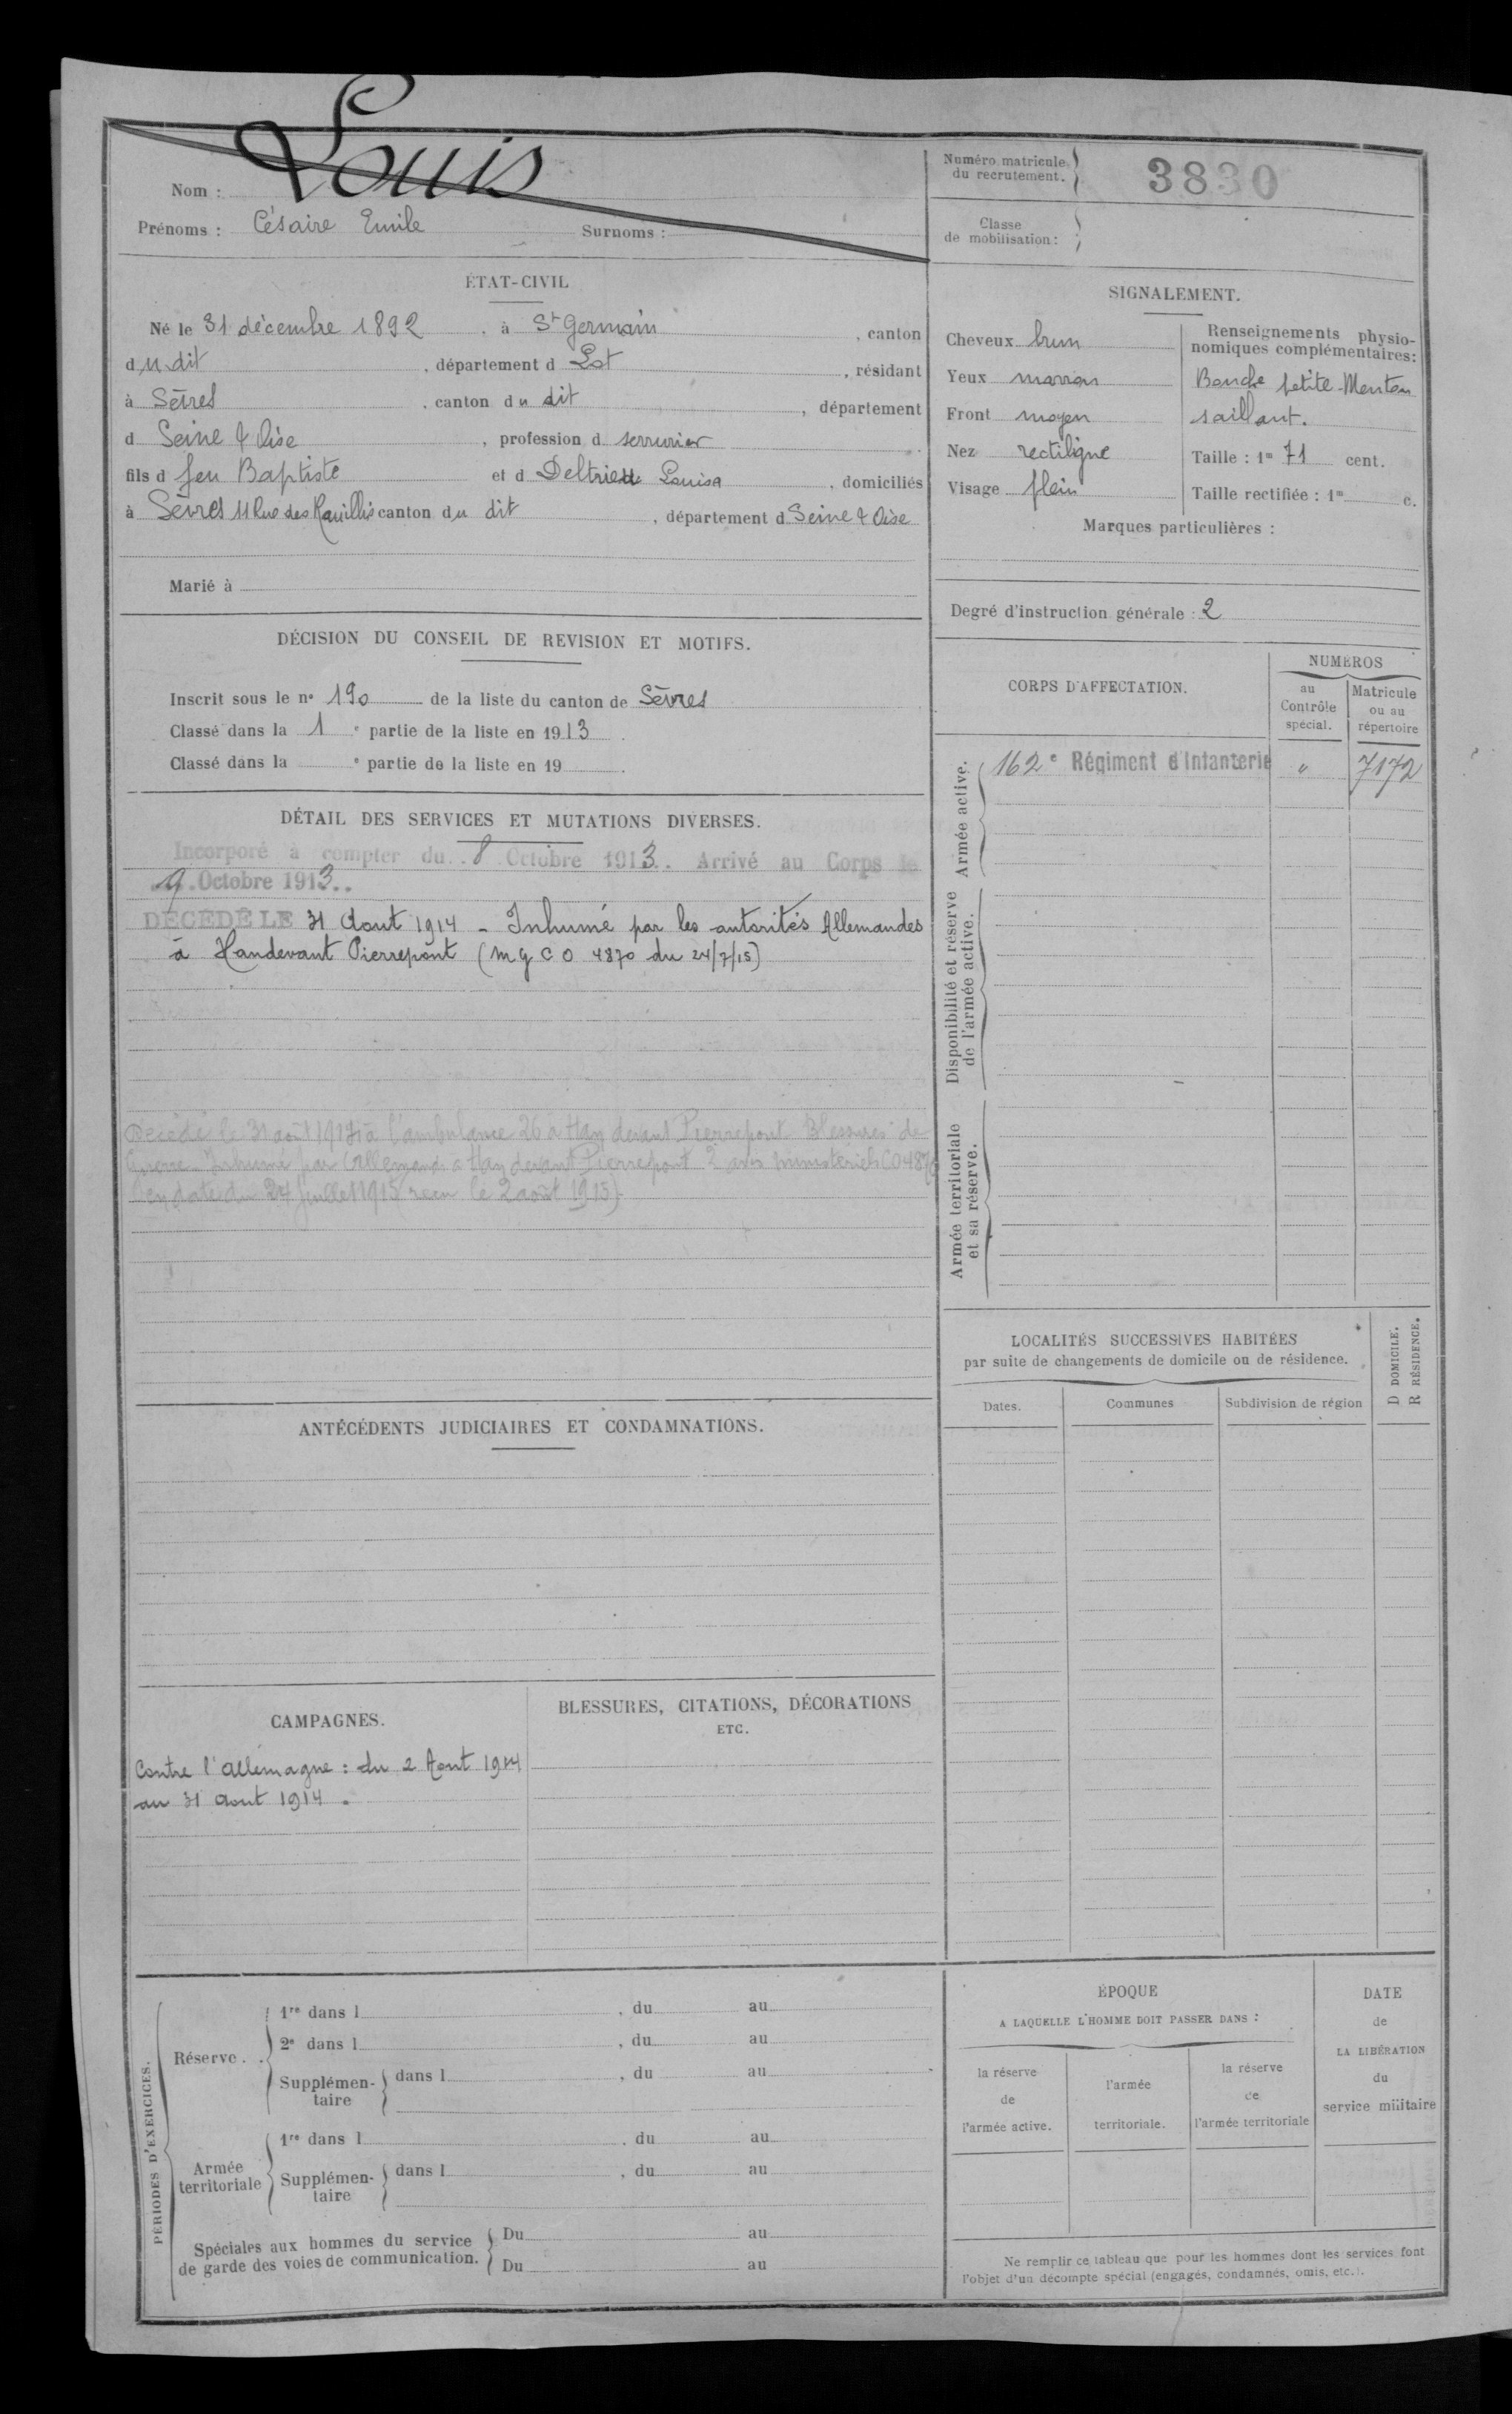 Louis
Nom :
Prénoms : Césaire Emile Surnoms :
Numéro matricule du recrutement. 3830
Classe de mobilisation :
ÉTAT-CIVIL
Né le 31 décembre 1892, à St Germain, canton
du dit, département d Lot, résidant
à Sèvres, canton du dit, département
d Seine & Oise, profession d serrurier
fils d feu Baptiste et d Deltrieu Louisa, domiciliés
à Sèvres 11 Rue des canton du dit, département d Seine & Oise
Marié à
SIGNALEMENT.
Cheveux brun
Yeux marron
Front moyen
Nez rectiligne
Visage plein
Renseignements physio-
nomiques complémentaires:
Bouche petite - Menton
saillant.
Taille : 1m 71 cent.
Taille rectifiée : 1m c.
Marques particulières :
Degré d'instruction générale : 2
DÉCISION DU CONSEIL DE REVISION ET MOTIFS.
Inscrit sous le n° 190 de la liste du canton de Sèvres
Classé dans la 1 e partie de la liste en 1913.
Classé dans la e partie de la liste en 19 .
CORPS D'AFFECTATION.
NUMÉROS
au Contrôle spécial.
Matricule ou au répertoire
Armée active.
162e Régiment d'Infanterie " 7172
Disponibilité et réserve de l'armée active.
Armée territoriale et sa réserve.
DÉTAIL DES SERVICES ET MUTATIONS DIVERSES.
Incorporé à compter du 8 Octobre 1913. Arrivé au Corps le
9 Octobre 1913.
DÉCÉDÉ LE 31 Aout 1914 - Inhumé par les autorités Allemandes
à Handevant Pierrepont (M G C O 4870 du 24/7/15)
Décédé le 31 août 1914 à l'ambulance 26 à Han devant Pierrepont Blessures de
Guerre - Inhumé par Allemands à Han devant Pierrepont avis ministériels CO 4870
en date du 24 juillet 1915 reçu le 2 août 1915).
LOCALITÉS SUCCESSIVES HABITÉES
par suite de changements de domicile ou de résidence.
Dates.
Communes
Subdivision de région
D DOMICILE.
R RÉSIDENCE.
ANTÉCÉDENTS JUDICIAIRES ET CONDAMNATIONS.
CAMPAGNES.
Contre l'allemagne : du 2 Aout 1914
au 31 Aout 1914.
BLESSURES, CITATIONS, DÉCORATIONS
ETC.
PÉRIODES D'EXERCICES.
Réserve.
1re dans l , du au
2e dans l , du au
Supplémen-taire dans l , du au
Armée territoriale
1re dans l , du au
Supplémen-taire dans l , du au
Spéciales aux hommes du service
de garde des voies de communication.
Du au
Du au
ÉPOQUE
A LAQUELLE L'HOMME DOIT PASSER DANS :
la réserve de l'armée active.
l'armée territoriale.
la réserve de l'armée territoriale
DATE
de
LA LIBÉRATION
du
service militaire
Ne remplir ce tableau que pour les hommes dont les services font
l'objet d'un décompte spécial (engagés, condamnés, omis, etc.).